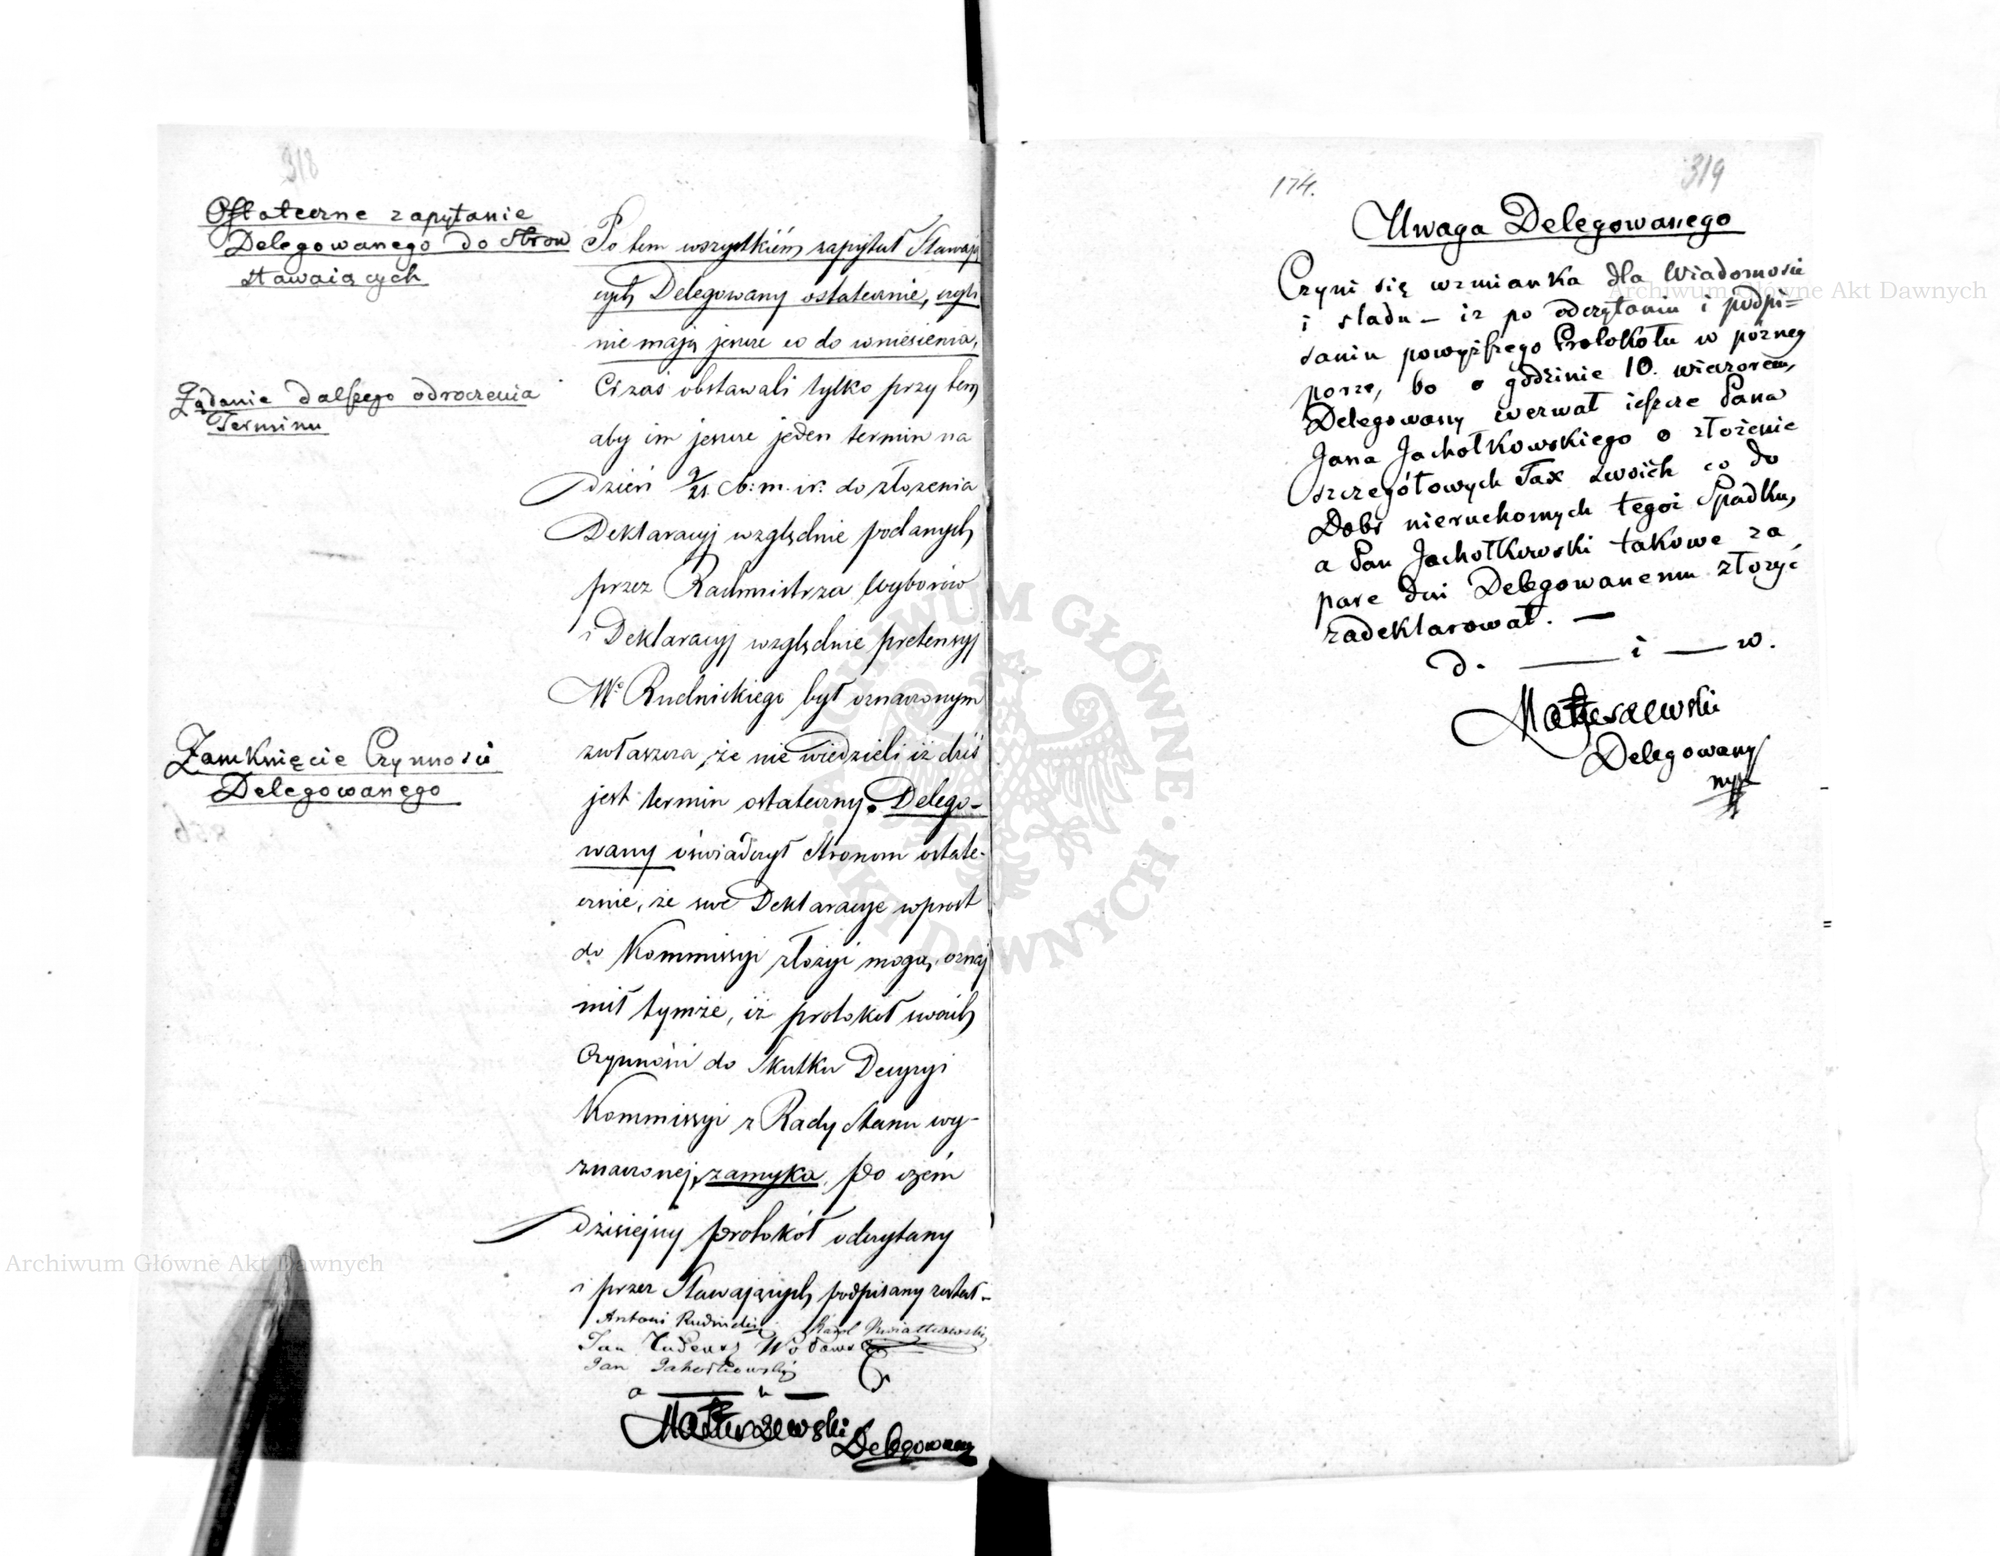 318
Ostateczne zapytanie
Delegowanego do Stron
stawaiących
Po tem wszystkiém zapytał Stawają
cych Delegowany ostatecznie, czyli
nie mają jeszcze co do wniesienia,
Żądanie dalszego odroczenia
Terminu
Ci zaś obstawali tylko przy tem
aby im jeszcze jeden termin na
dzień 9/21 b: m. i r: do złożenia
Deklaracyj względnie podanych
przez Rachmistrza Wyborów
i Deklaracyj względnie pretensyj
Wo Rudnickiego był oznaczonym
zwłaszcza, że nie wiedzieli iż dziś
Zamknięcie Czynności
Delegowanego
jest termin ostateczny. Delego-
wany oświadczył Stronom ostate-
cznie, że swe Deklaracye wprost
do Kommissyi złożyć mogą, oznaj
mił tymże, iż protokół swoich
Czynności do Skutku Decyzyi
Kommissyi z Rady Stanu wy-
znaczonej, zamyka. Po czém
dzisiejszy protokół odczytany
i przez Stawających podpisany został.-
Antoni Rudnicki Karol
Jan Tadeusz
Jan Jachołkowski
a — u —
Matuszewski
Delegowany
319
174.
Uwaga Delegowanego
Czyni się wzmianka dla Wiadomości
i sladu - iz po odczytaniu i podpi=
saniu powyższego Protokołu w pózney
porze, bo o godzinie 10. wieczorem,
Delegowany wezwał ieszcze Pana
Jana Jachołkowskiego o złożenie
szczegółowych Tax swoich co do
Dobr nieruchomych tegoż Spadku,
a Pan Jachołkowski takowe za
pare dni Delegowanemu złożyć
zadeklarował. —
d. — i — w.
Matuszewski
Delegowany
Archiwum Główne Akt Dawnych
Archiwum Główne Akt Dawnych
ARCHIWUM GŁÓWNE · AKT DAWNYCH ·